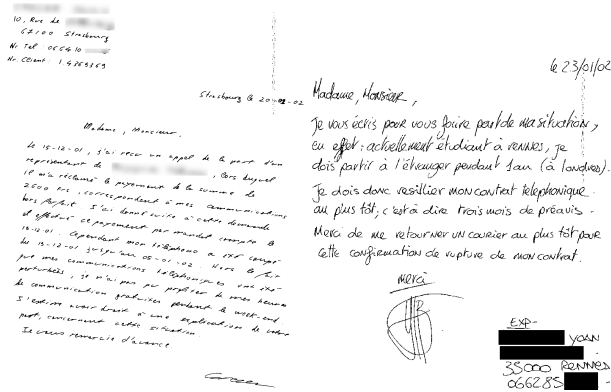 10, Rue de
67100 Strasbourg
Nr Tel 066410
Nr. Client : 1.4369369
Strasbourg le 20-02-02
Madame, Monsieur.
Le 15-12-01, j'ai reçu un appel de la part d'un
représentant de , lors duquel
il m'a réclamé le payement de la somme de
2600 Frs, correspondant à mes communications
hors forfait. J'ai donné suite à cette demande
et effectué ce payement par mandat compte le
18-12-01. Cependant mon téléphone a été coupé
du 15-12-01 jusqu'au 05-01-02. Hors le fait
que mes communications téléphoniques ont été
perturbées, je n'ai pas pu profiter de mes heures
de communication gratuites pendant le week-end
J'estime avoir droit à une explication de votre
part, concernant cette situation.
Je vous remercie d'avance.
le 23/01/02
Madame, Monsieur,
Je vous écris pour vous faire part de ma situation,
en effet : actuellement étudiant à rennes, je
dois partir à l'étranger pendant 1 an (à londres).
Je dois donc resillier mon contrat telephonique
au plus tôt, c'est à dire trois mois de préavis.
Merci de me retourner un courier au plus tôt pour
cette confirmation de rupture de mon contrat.
merci
EXP-
YOAN
35000 RENNES
066285